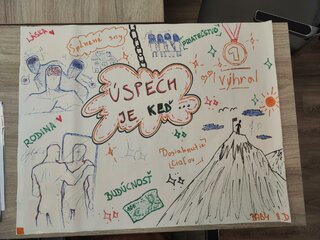 LÁSKA
Splnené sny
PRIATEĽSTVO
1
Výhra!
ÚSPECH
JE KEĎ...
RODINA
Dosiahnutie
cieľov
BUDÚCNOSŤ